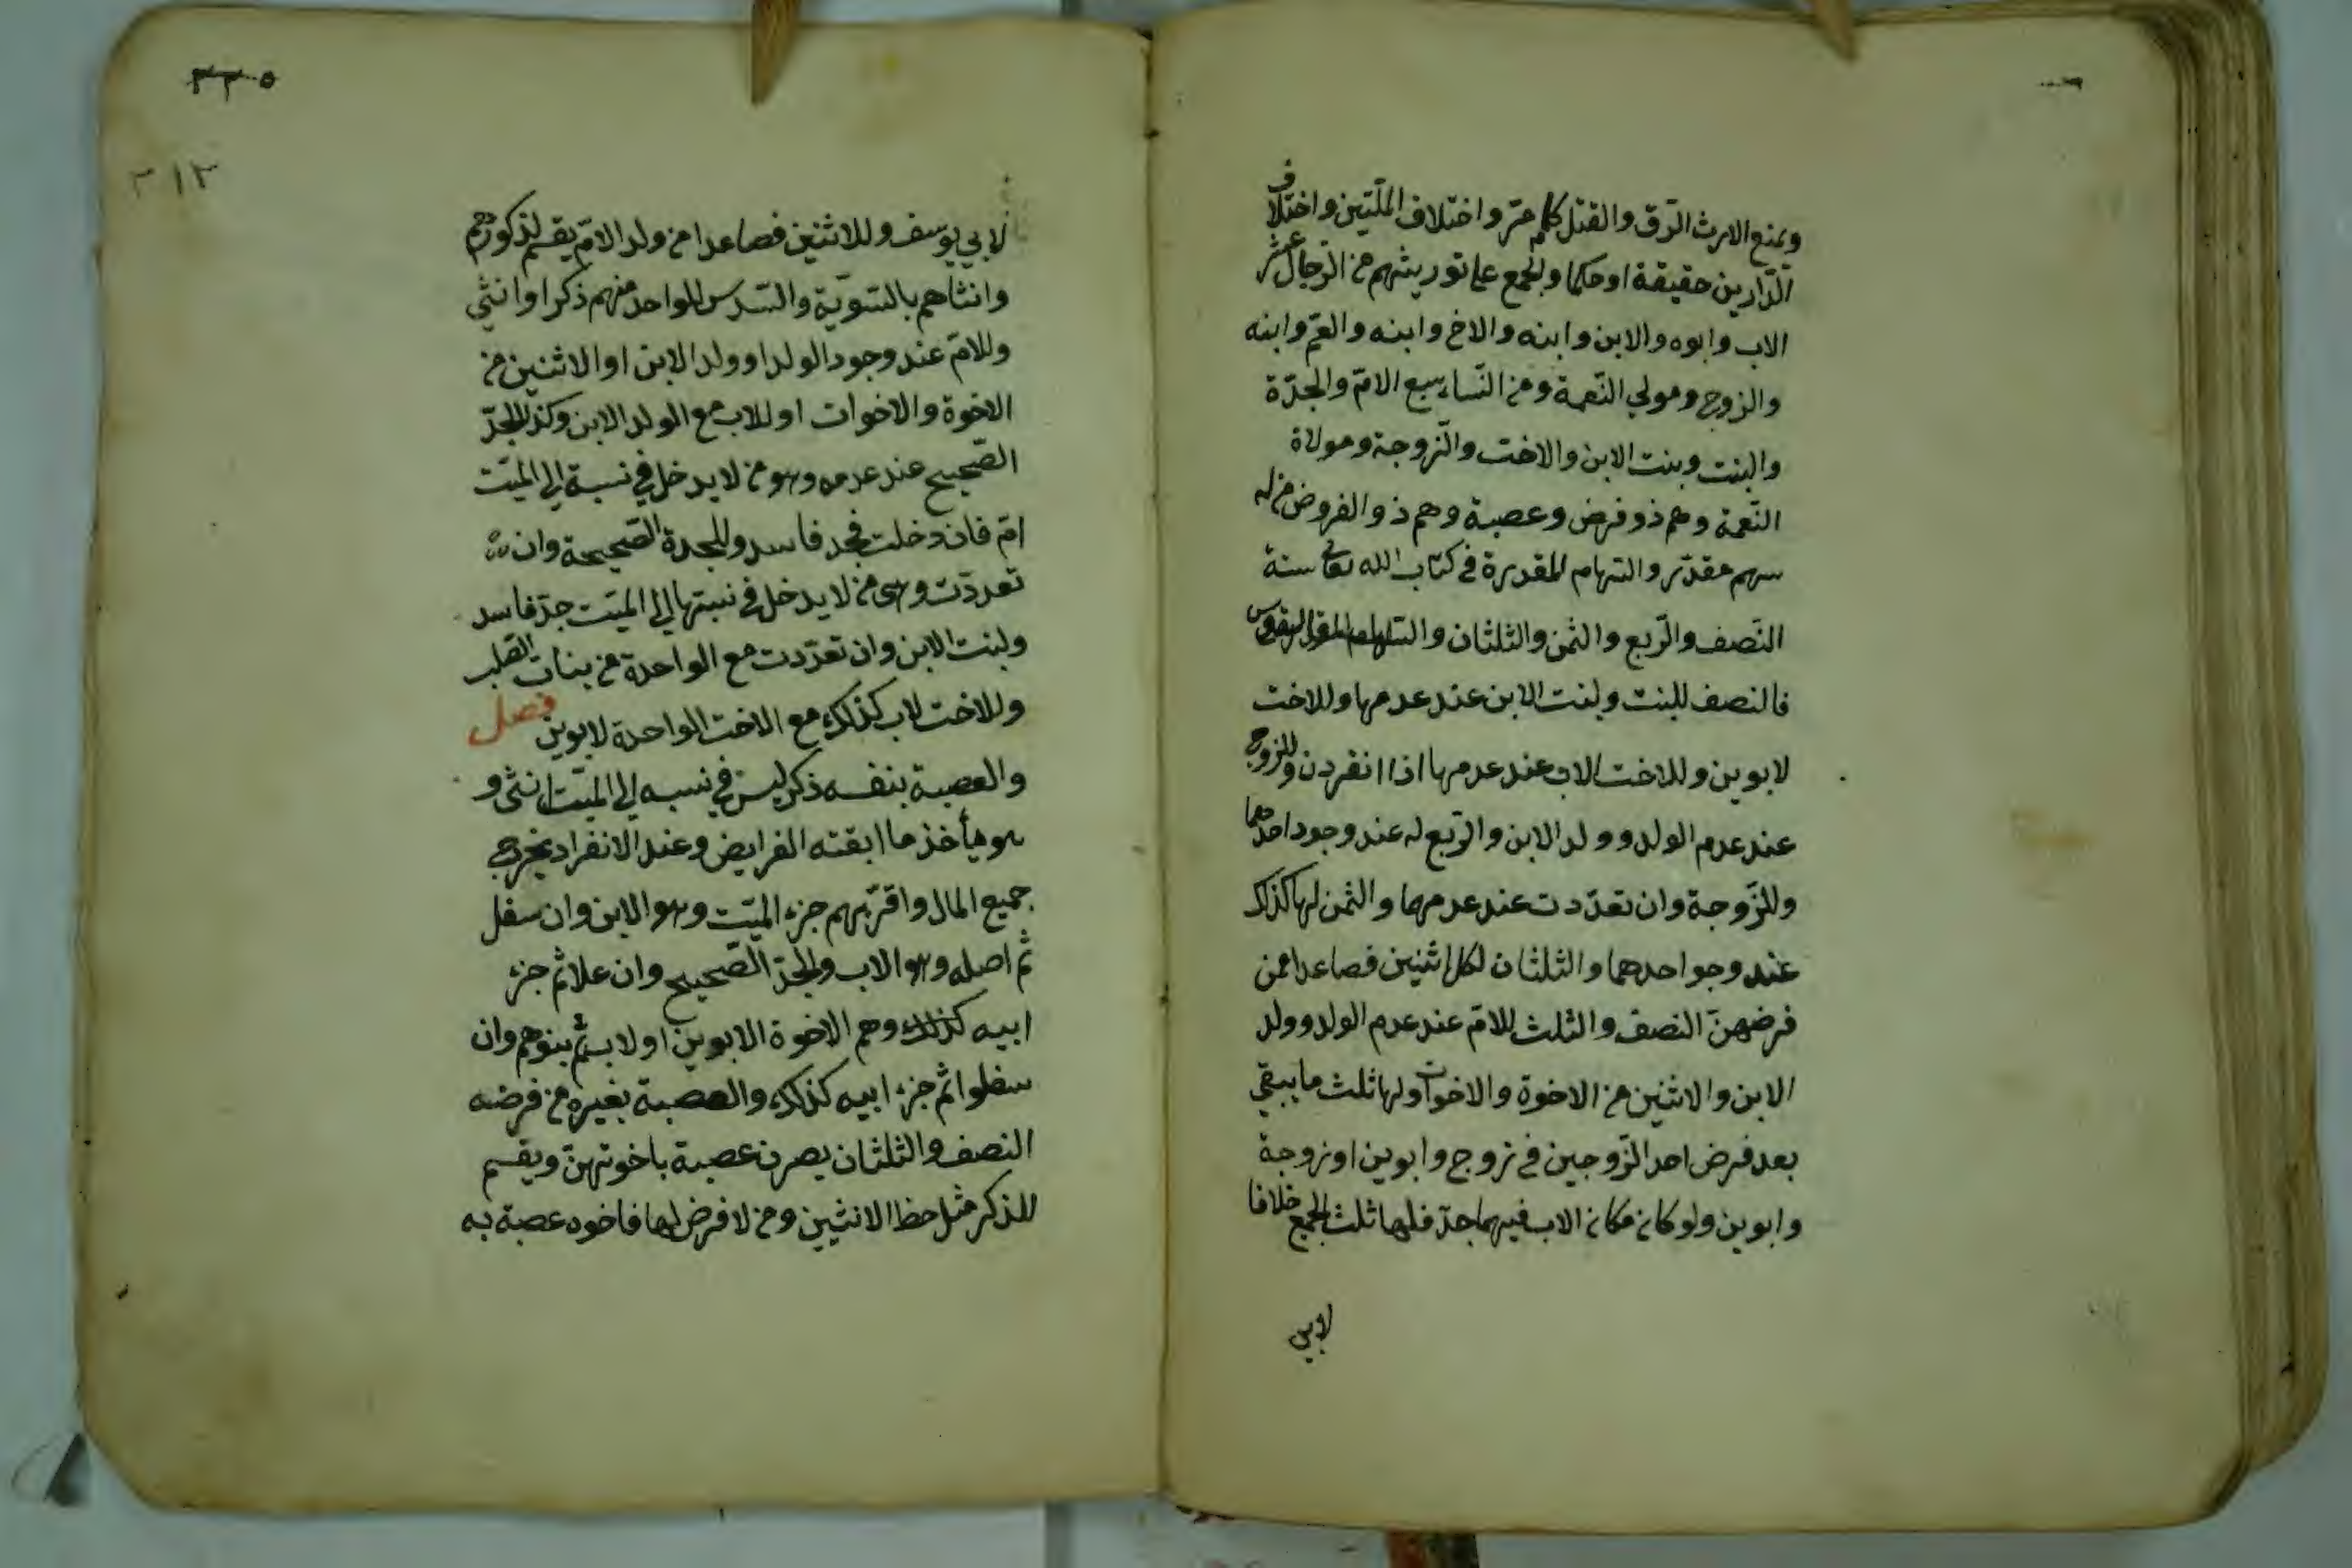 ويمنع الارث الرّق والقتل كما مرّ واختلاف الملّتين واختلاف
الدّارين حقيقة او حكما والجمع على توريثهم من الرجال عشر
الاب وابوه والابن وابنه والاخ وابنه والعمّ وابنه
والزوج ومولي النّعمة ومن النّسا سبع الامّ والجدّة
والبنت وبنت الابن والاخت والزّوجة ومولاة
النّعمة وهم ذو فرض وعصبة وهم ذو الفروض من له
سهم مقدّر والسّهام المقدرة في كتاب الله تعالى ستة
النّصف والرّبع والثمن والثلثان والثلث والسدس
فالنصف للبنت ولبنت الابن عند عدمها وللاخت
لابوين وللاخت لاب عند عدمها اذا انفردن وللزوج
عند عدم الولد وولد الابن والرّبع له عند وجود احدهما
وللزّوجة وان تعدّدت عند عدمهما والثمن لها كذلك
عند وجو احدهما والثلثان لكل اثنين فصاعدا ممن
فرضهنّ النصف والثلث للامّ عند عدم الولد وولد
الابن والاثنين من الاخوة والاخوات ولها ثلث ما يبقي
بعد فرض احد الزّوجين في زوج وابوين او زوجة
وابوين ولو كان مكان الاب فيهما جدّ فلها ثلث الجمع خلافا
لابي
٣٣٥
٣١٢
لابي يوسف وللاثنين فصاعدا من ولد الامّ يقسم لذكورهم
وانثاهم بالسّويّة والسّدس للواحد منهم ذكرا او انثي
وللامّ عند وجود الولد او ولد الابن او الاثنين من
الاخوة والاخوات او للاب مع الولد الابن وكذا للجدّ
الصّحيح عند عدمه وهو من لا يدخل في نسبة الى الميّت
امّ فان دخلت فجد فاسد وللجدة الصّحيحة وان
تعددّت وهي من لا يدخل في نسبتها الى الميّت جدّ فاسد
ولبنت الابن وان تعدّدت مع الواحدة من بنات الصّلب
وللاخت لاب كذلك مع الاخت الواحدة لابوين فصل
والعصبة بنفسه ذكر ليس في نسبه الى الميّت انثى و
هو يأخذ ما ابقته الفرايض وعند الانفراد يحرز
جميع المال واقرّبهم جزء الميّت وهو الابن وان سفل
ثم اصله وهو الاب والجدّ الصّحيح وان علا ثم جزء
ابيه كذلك وهم الاخوة الابوين او لاب ثم بنوهم وان
سفلوا ثم جزء ابيه كذلك والعصبة بغيره من فرضه
النصف والثلثان يصرن عصبة باخوتهنّ ويقسم
للذكر مثل حظ الانثيين ومن لا فرض لها فاخوه عصبة به